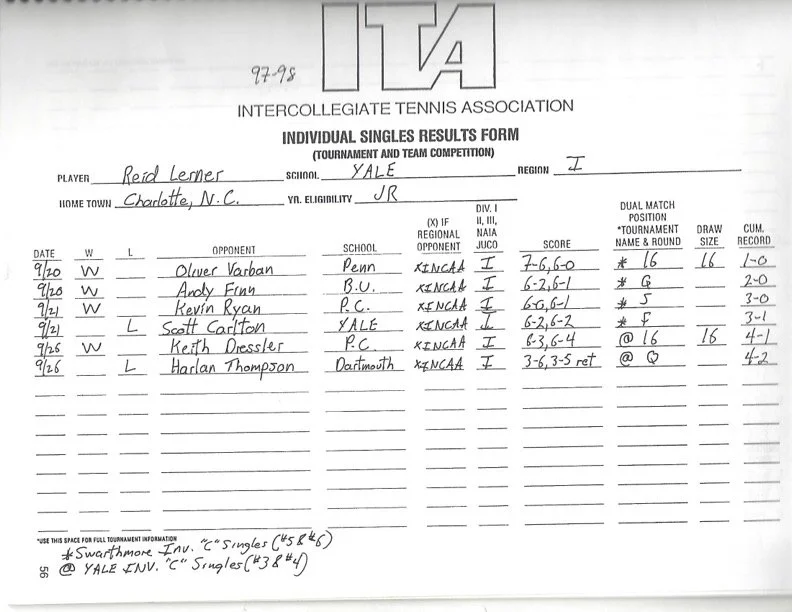 97-98
ITA
INTERCOLLEGIATE TENNIS ASSOCIATION
INDIVIDUAL SINGLES RESULTS FORM
(TOURNAMENT AND TEAM COMPETITION)
PLAYER Reid Lerner SCHOOL YALE REGION I
HOME TOWN Charlotte, N.C. YR. ELIGIBILITY JR
DATE W L OPPONENT SCHOOL (X) IF REGIONAL OPPONENT DIV. I II, III, NAIA JUCO SCORE DUAL MATCH POSITION *TOURNAMENT NAME & ROUND DRAW SIZE CUM. RECORD
9/20 W Oliver Varban Penn XINCAA I 7-6, 6-0 * 16 16 1-0
9/20 W Andy Finn B.U. XINCAA I 6-2, 6-1 * Q 2-0
9/21 W Kevin Ryan P.C. XINCAA I 6-0, 6-1 * S 3-0
9/21 L Scott Carlton YALE XINCAA I 6-2, 6-2 * F 3-1
9/26 W Keith Dressler P.C. XINCAA I 6-3, 6-4 @ 16 16 4-1
9/26 L Harlan Thompson Dartmouth XINCAA I 3-6, 3-5 ret @ Q 4-2
*USE THIS SPACE FOR FULL TOURNAMENT INFORMATION
* Swarthmore Inv. "C" Singles (#5 & #6)
@ YALE INV. "C" Singles (#3 & #4)
56